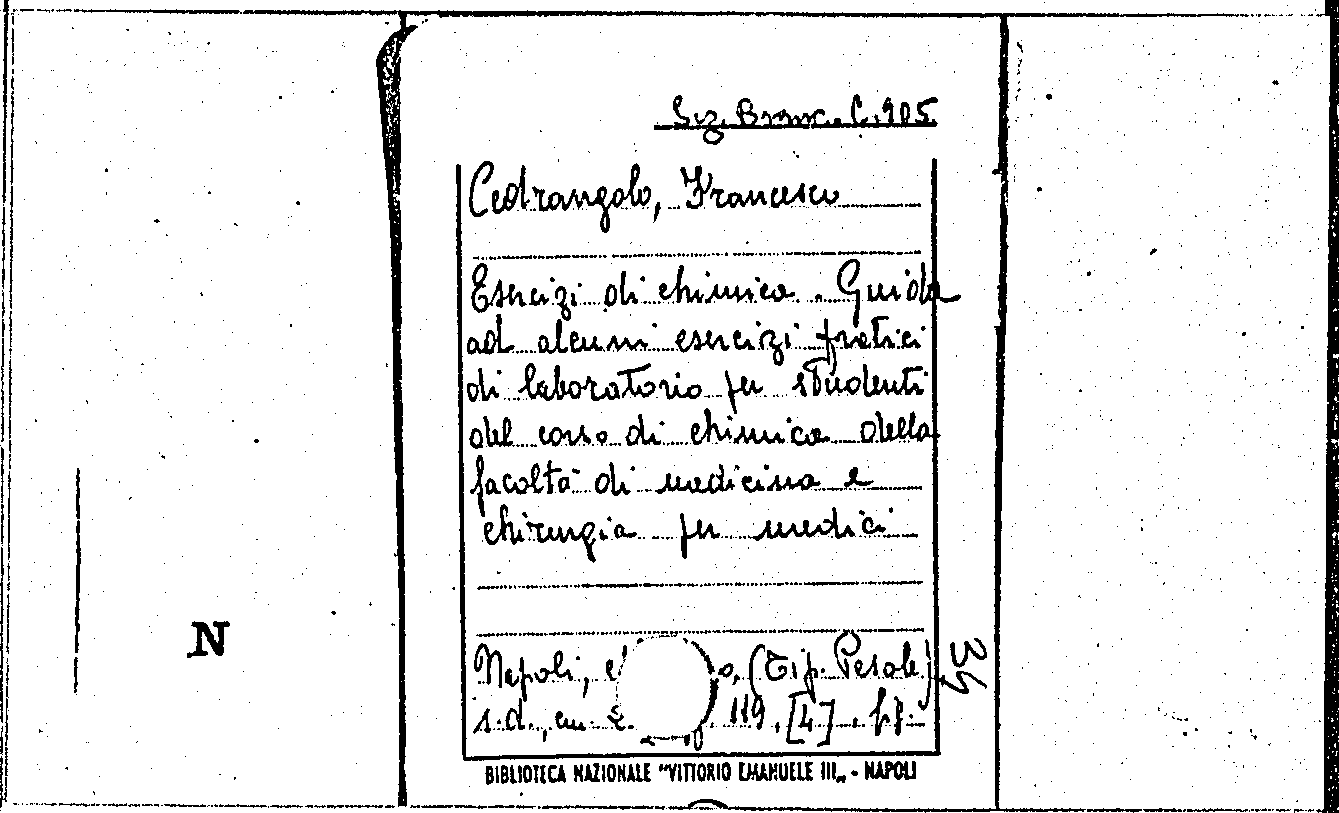 Sez. Branc. C. 905
Cedrangolo, Francesco
Esercizi di chimica. Guida
ad alcuni esercizi pratici
di laboratorio per studenti
del corso di chimica della
facoltà di medicina e
chirurgia per medici
N
Napoli, (Tip. Pesole)
s.d., cm. 119, [4]. pp.
34
BIBLIOTECA NAZIONALE "VITTORIO EMANUELE III" - NAPOLI